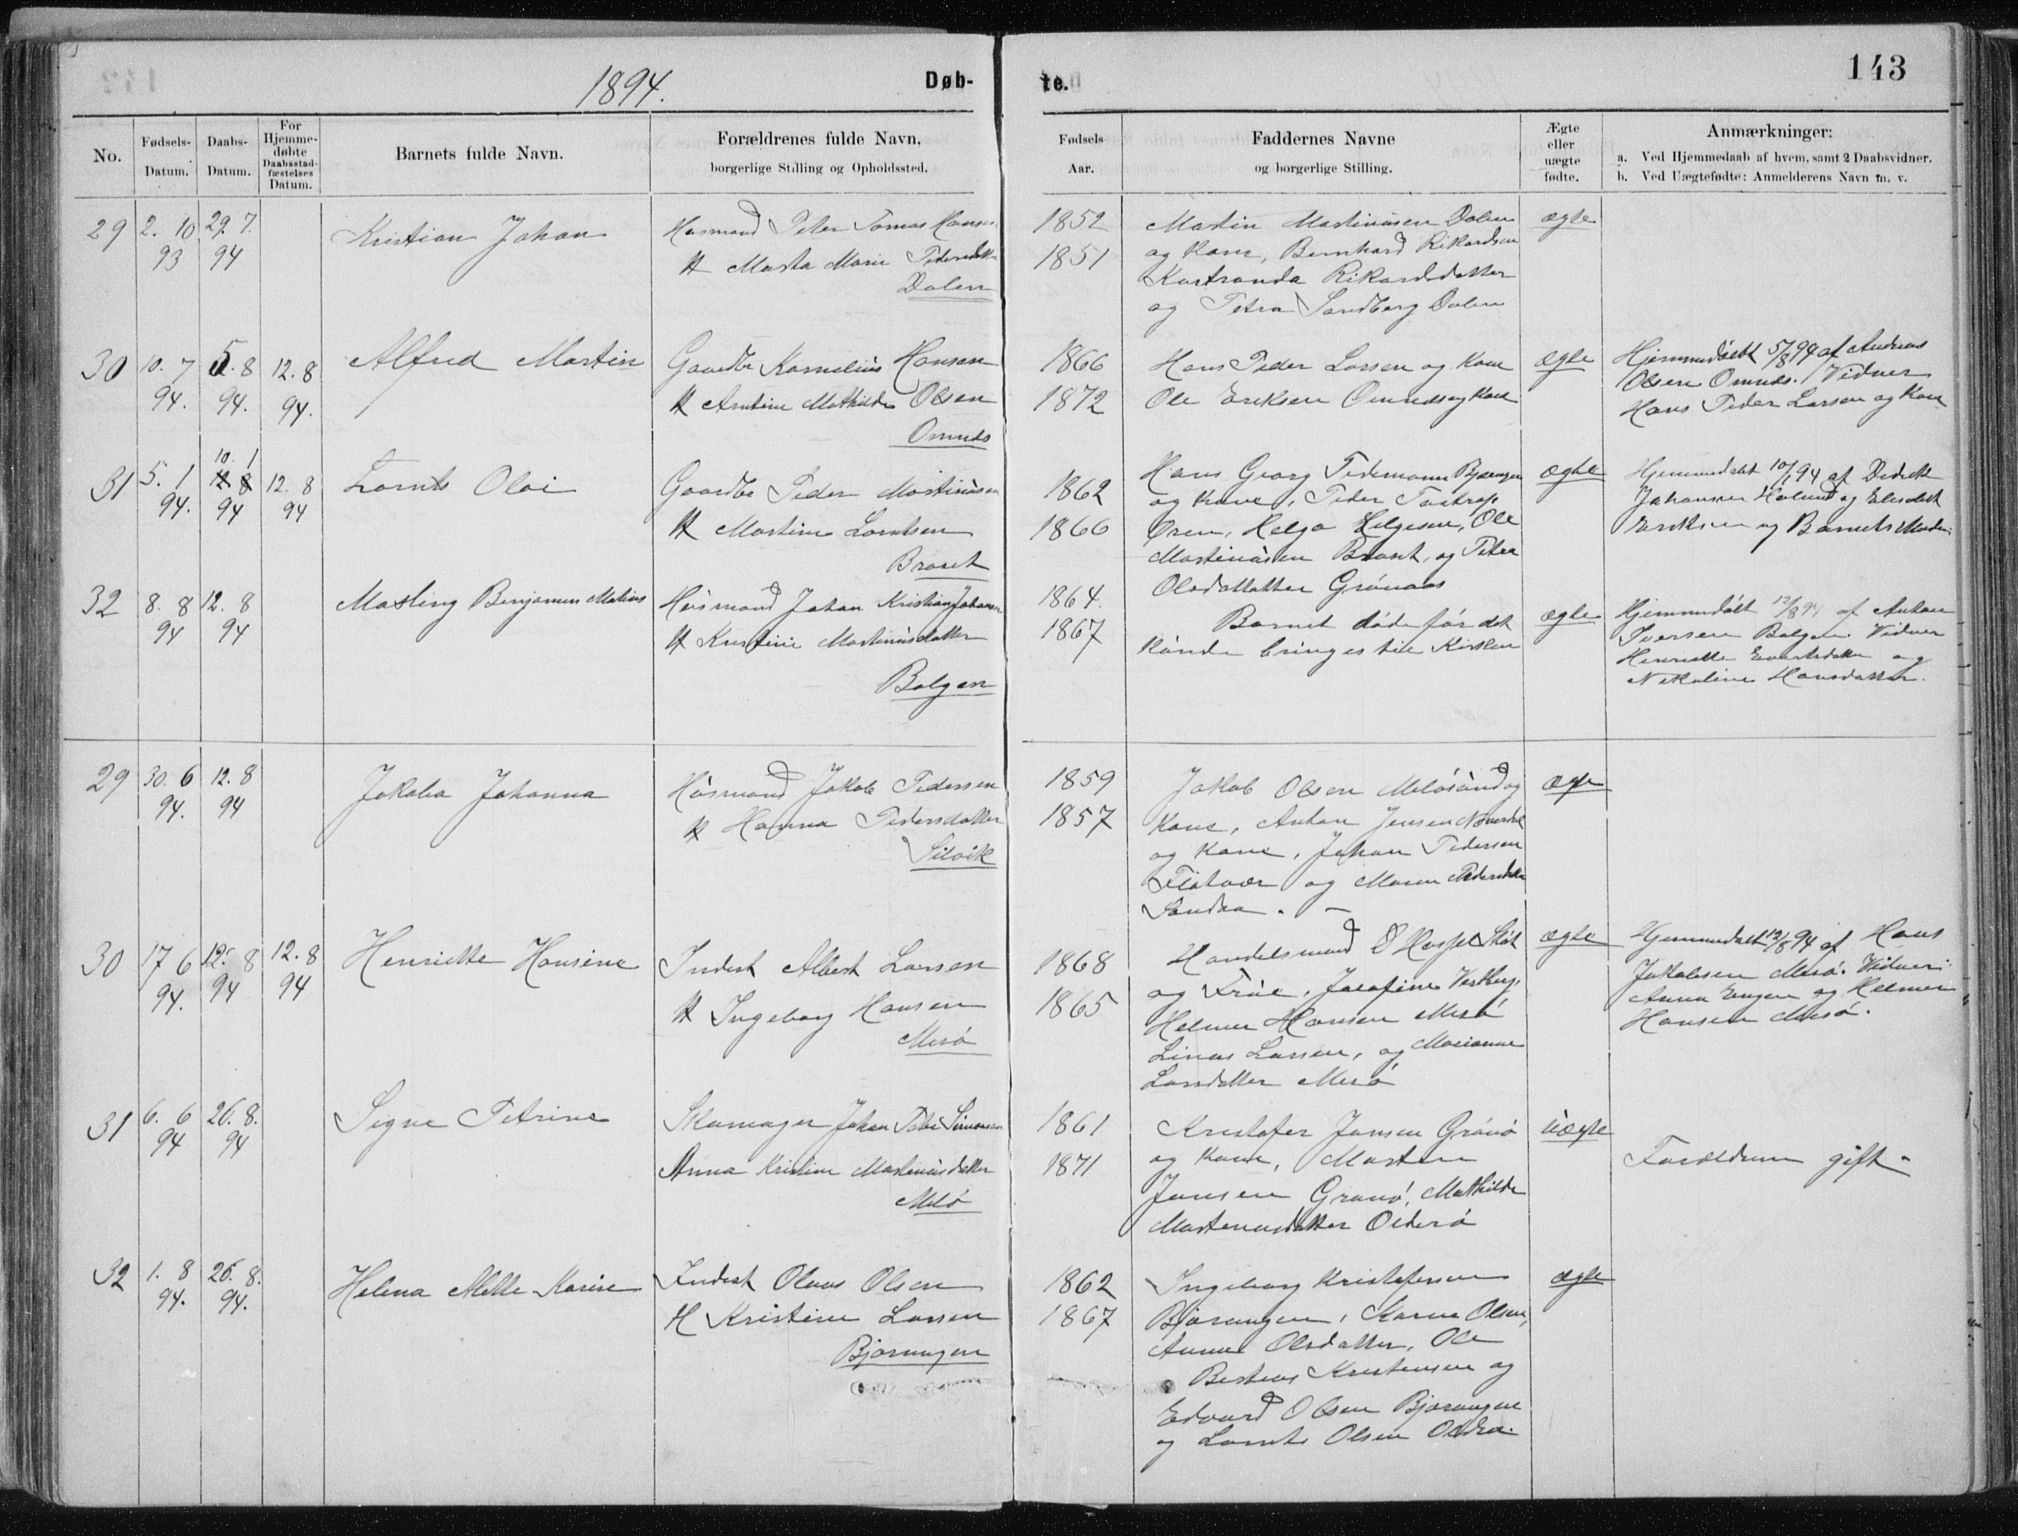 1894.
Døb-
te.
143
No.
Fødsels-
Datum.
Daabs-
Datum.
For
Hjemme-
døbte
Daabsstad-
fæstelses
Datum.
Barnets fulde Navn.
Forældrenes fulde Navn,
borgerlige Stilling og Opholdssted.
Fødsels
Aar.
Faddernes Navne
og borgerlige Stilling.
Ægte
eller
uægte
fødte.
Anmærkninger:
a. Ved Hjemmedaab af hvem, samt 2 Daabsvidner.
b. Ved Uægtefødte: Anmelderens Navn m. v.
29
2. 10
93
29. 7.
94
Kristian Johan
Husmand Peter Tomas Hansen
H Marta Marie Pedersdatter
Dalen
1852
1851
Martin Martinusen Dalen
og Kone, Bernhard Rikardsen
Rikardsdatter
og Petra Sandberg Dalen
ægte
30
10. 7
94.
5. 8
94.
12. 8
94.
Alfred Martin
Gaardbr Kornelius Hansen
H Arntine Mathilde Olsen
Omnes
1866
1872
Hans Peder Larsen og Kone
Ole Eriksen Omnes og Kone
ægte
Hjemmedøbt 5/8 94 af Andreas
Olsen Omnes. Vidner
Hans Peder Larsen og Kone
31
5. 1
94.
10. 1
12 8
94
12. 8
94
Lornts Olai
Gaardbr Peder Martinusen
H Martine Lorntsen
Braset
1862
1866
Hans Georg Tidemann Bjærangen
og Kone, Peder
Øren, Helga Helgesen, Ole
Martinusen Braset, og Petra
Olsdatter Grønaas
ægte
Hjemmedøbt 10/1 94 af
Johansen og
Eriksen og Barnets Moder
32
8. 8
94
12. 8
94
Masling Benjamin Matius
Husmand Johan Kristian Johansen
H Kristine Martinusdatter
Bolgen
1864.
1867
Barnet døde før det
kunde bringes til Kirken
ægte
Hjemmedøbt 12/8 94 af Anton
Iversen Bolgen. Vidner
Henriette Evertsdatter og
Nikoline Hansdatter.
29
30. 6
94.
12. 8
94
Jakoba Johanna
Husmand Jakob Pedersen
H Hanna Pedersdatter
Silvik
1859
1857
Jakob Olsen Meløsund og
Kone, Anton Jensen
og Kone, Johan Pedersen
Flatvær og Maren Pedersdatter
Sandaa. -
ægte
30
17 6
94.
12. 8
94
12. 8
94
Henriette Hansine
Inderst Albert Larsen
H Ingeborg Hansen
Mesø
1868
1865
Handelsmand
og Frue, Josefine Vestberg,
Helmer Hansen Mesø
Linus Larsen, og Marianne
Larsdatter Mesø
ægte
Hjemmedøbt 12/8 94 af Hans
Jakobsen Mesø. Vidner:
Anna og Helmer
Hansen Mesø.
31
6. 6
94
26. 8.
94
Signe Petrine
Skomager Johan Peter Simonsen
Anna Kristine Martinusdatter
Melø
1861
1871
Kristofer Jansen Grønø
og Kone, Morten
Jansen Grønø, Mathilde
Martinusdatter Olderø
uægte
Forældrene gift -
32
1. 8
94.
26. 8.
94.
Helena Mette Karine
Inderst Olaus Olsen
H Kristine Larsen
Bjærangen
1862
1867
Ingeborg Kristofersen
Bjærangen, Karen Olsen,
Anna Olsdatter, Ole
Kristensen og
Edvard Olsen Bjærangen
og Lornts Olsen
ægte